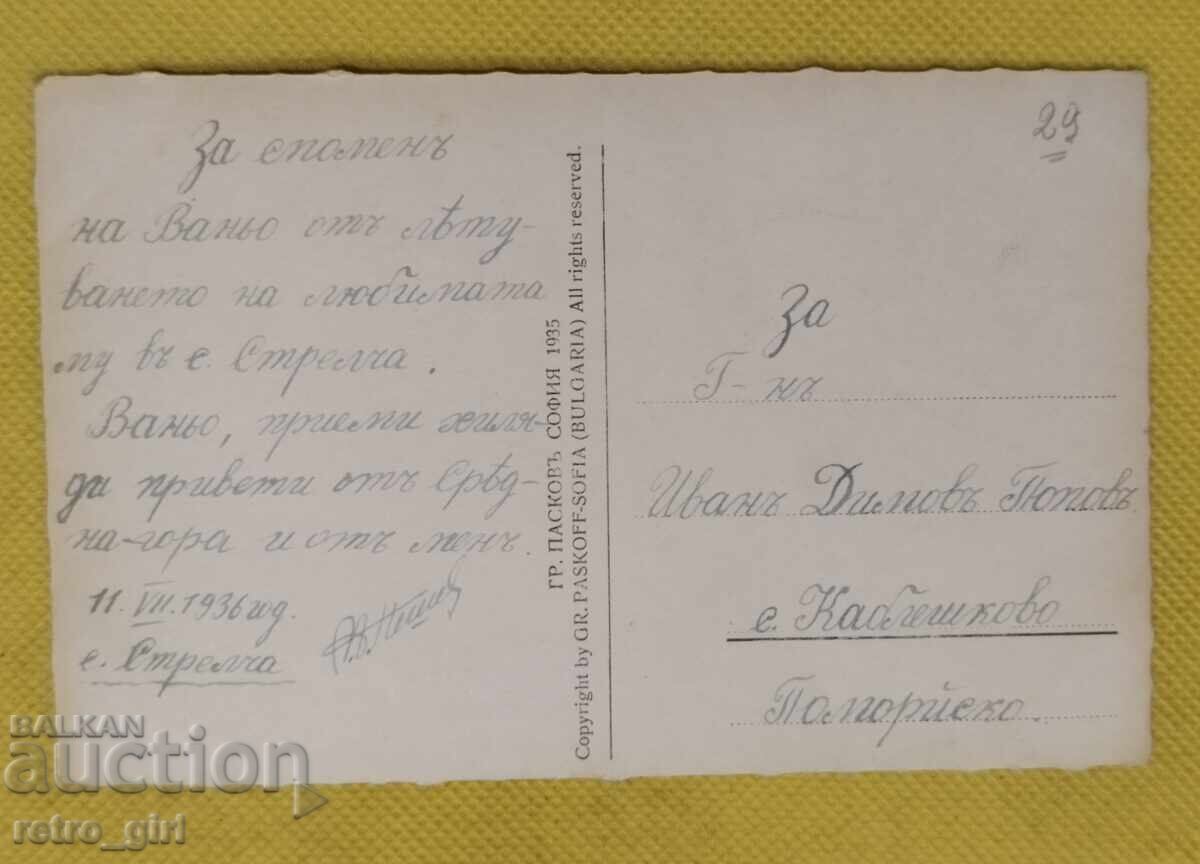 За споменъ
на Ваньо отъ лѣту-
ването на любимата
му въ с. Стрелча.
Ваньо, приеми хиля-
ди привети отъ Срѣд-
на-гора и отъ менъ.
11. VII. 1936 год.
с. Стрелча
ГР. ПАСКОВЪ СОФИЯ 1935
Copyright by GR. PASKOFF-SOFIA (BULGARIA) All rights reserved.
29
За
Г-нъ
Иванъ Димовъ Поповъ
с. Каблешково
Поморийско.
BALKAN
auction
retro_girl